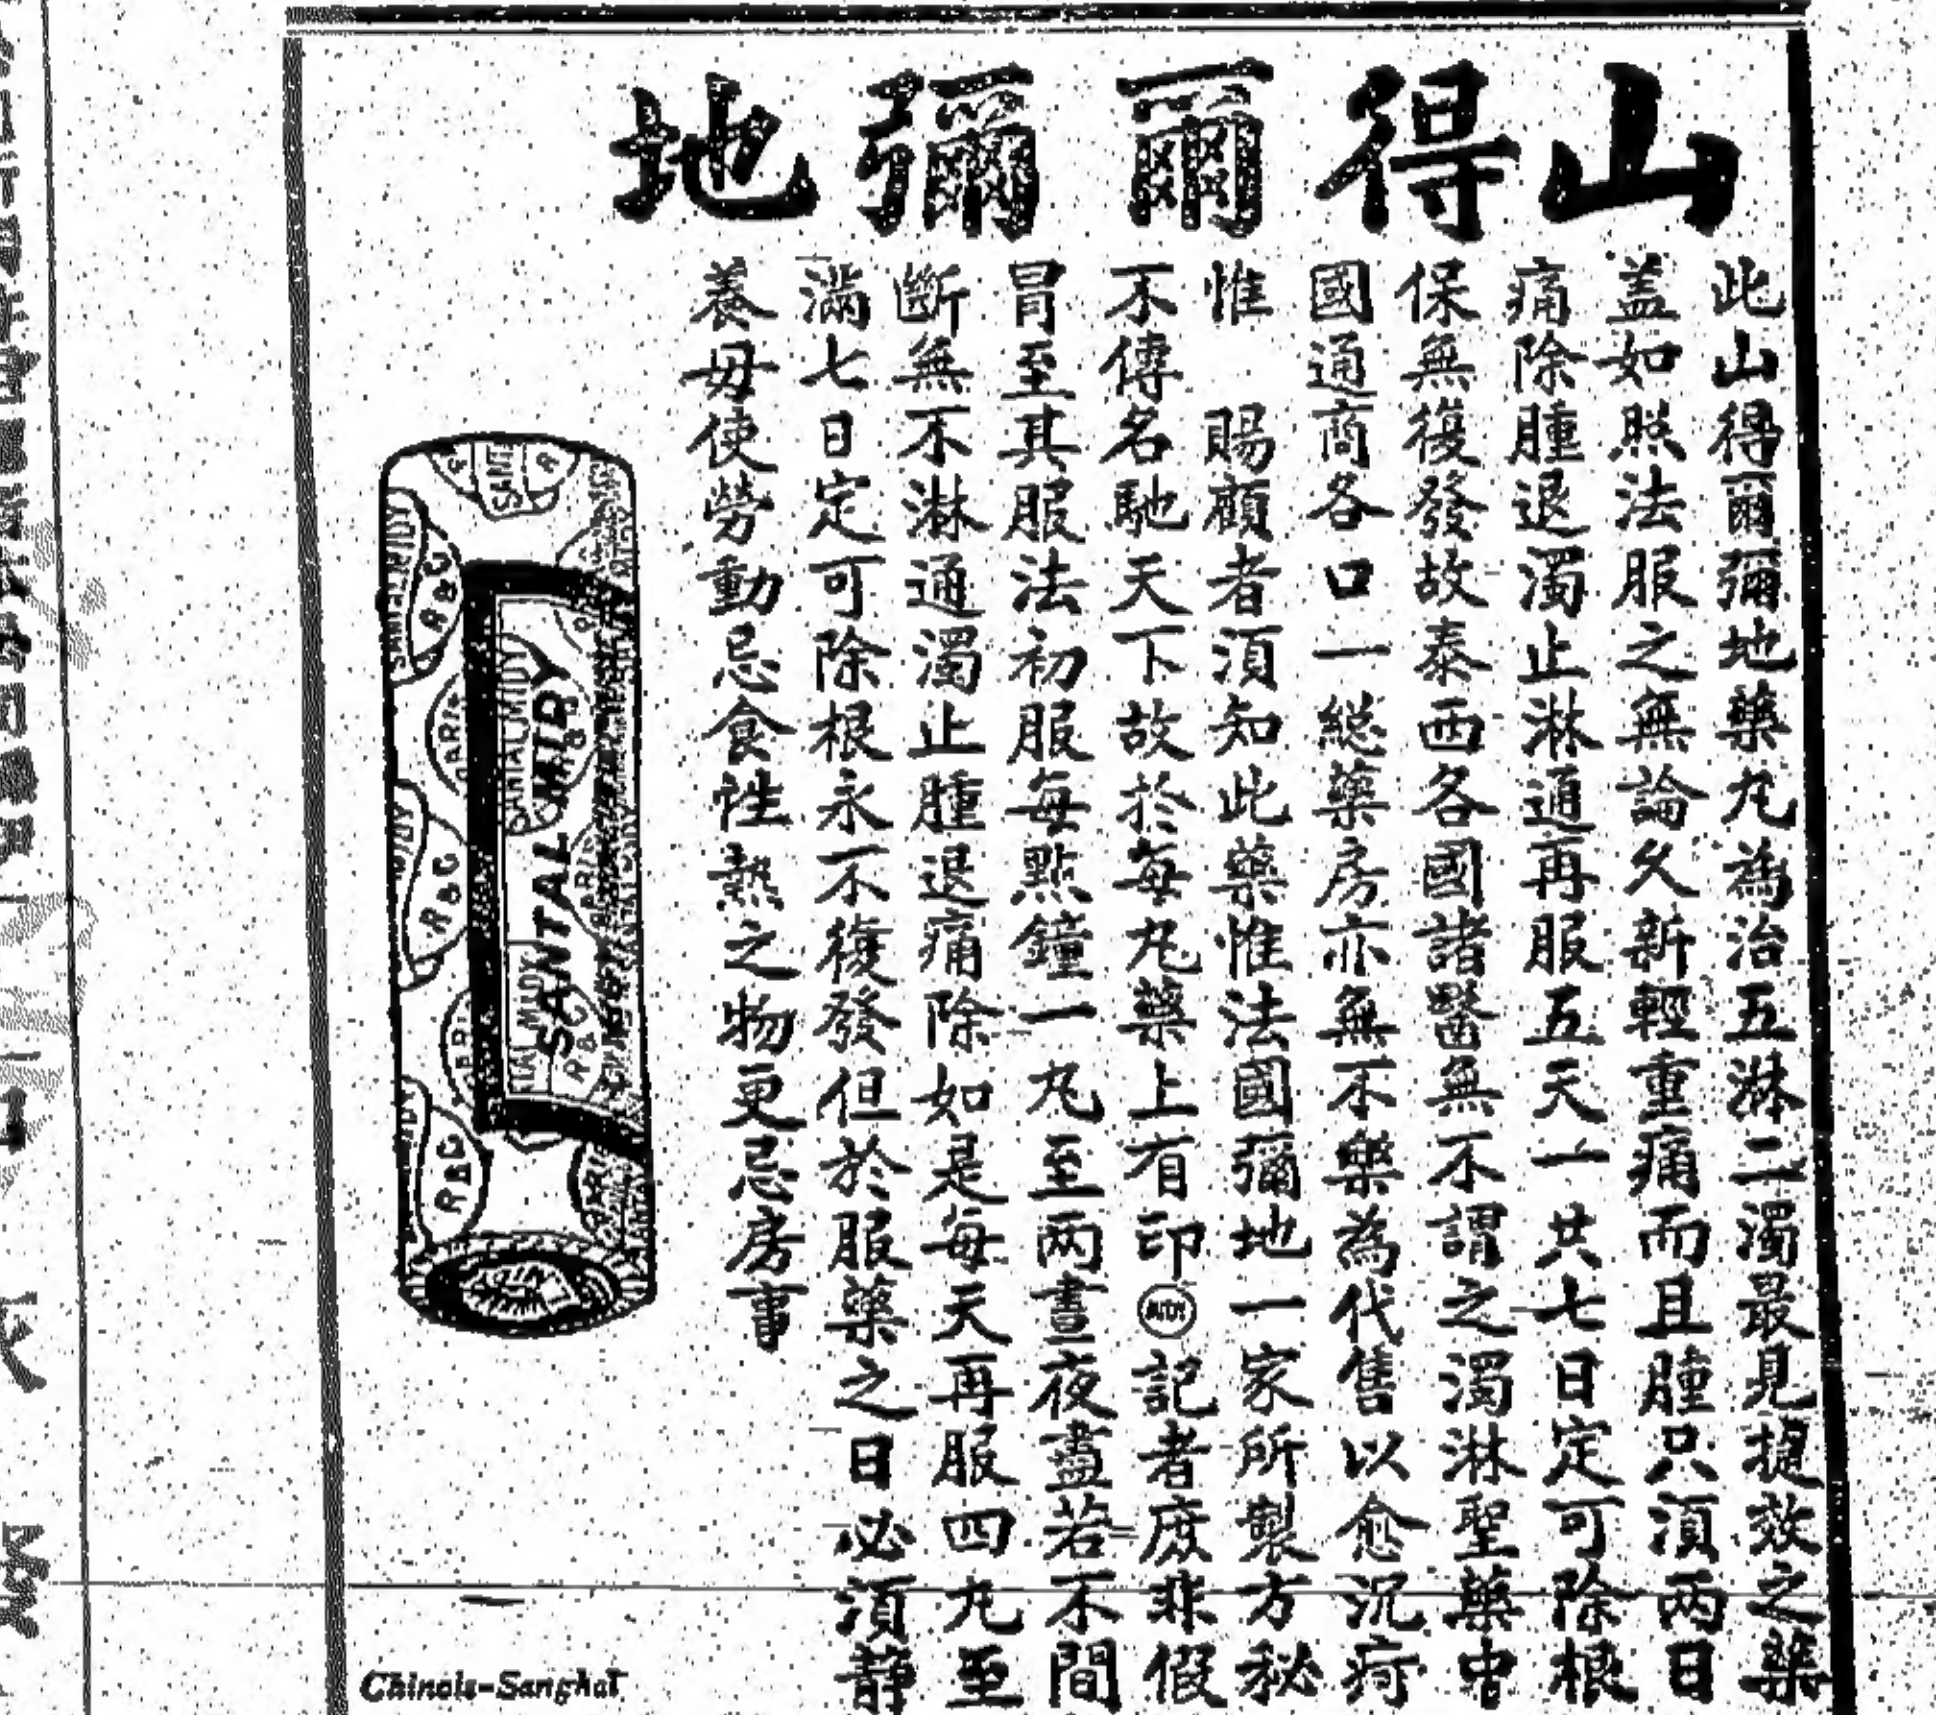 山得爾彌地
此山得爾彌地藥丸為治五淋二濁最見捷效之藥
蓋如照法服之無論久新輕重痛而且腫只須兩日
痛除腫退濁止淋通再服五天一共七日定可除根
保無復發故泰西各國諸醫無不謂之濁淋聖藥中
國通商各口一総藥房亦無不樂為代售以愈沉疴
惟 賜顧者須知此藥惟法國彌地一家所製方秘
不傳名馳天下故於每丸藥上有印MIDY記者庶非假
冒至其服法初服每點鐘一丸至两晝夜盡若不間
斷無不淋通濁止腫退痛除如是每天再服四九至
滿七日定可除根永不復發但於服藥之日必須靜
養毋使勞動忌食性熱之物更忌房事
SANTAL MIDY
Chinois-Sanghaï